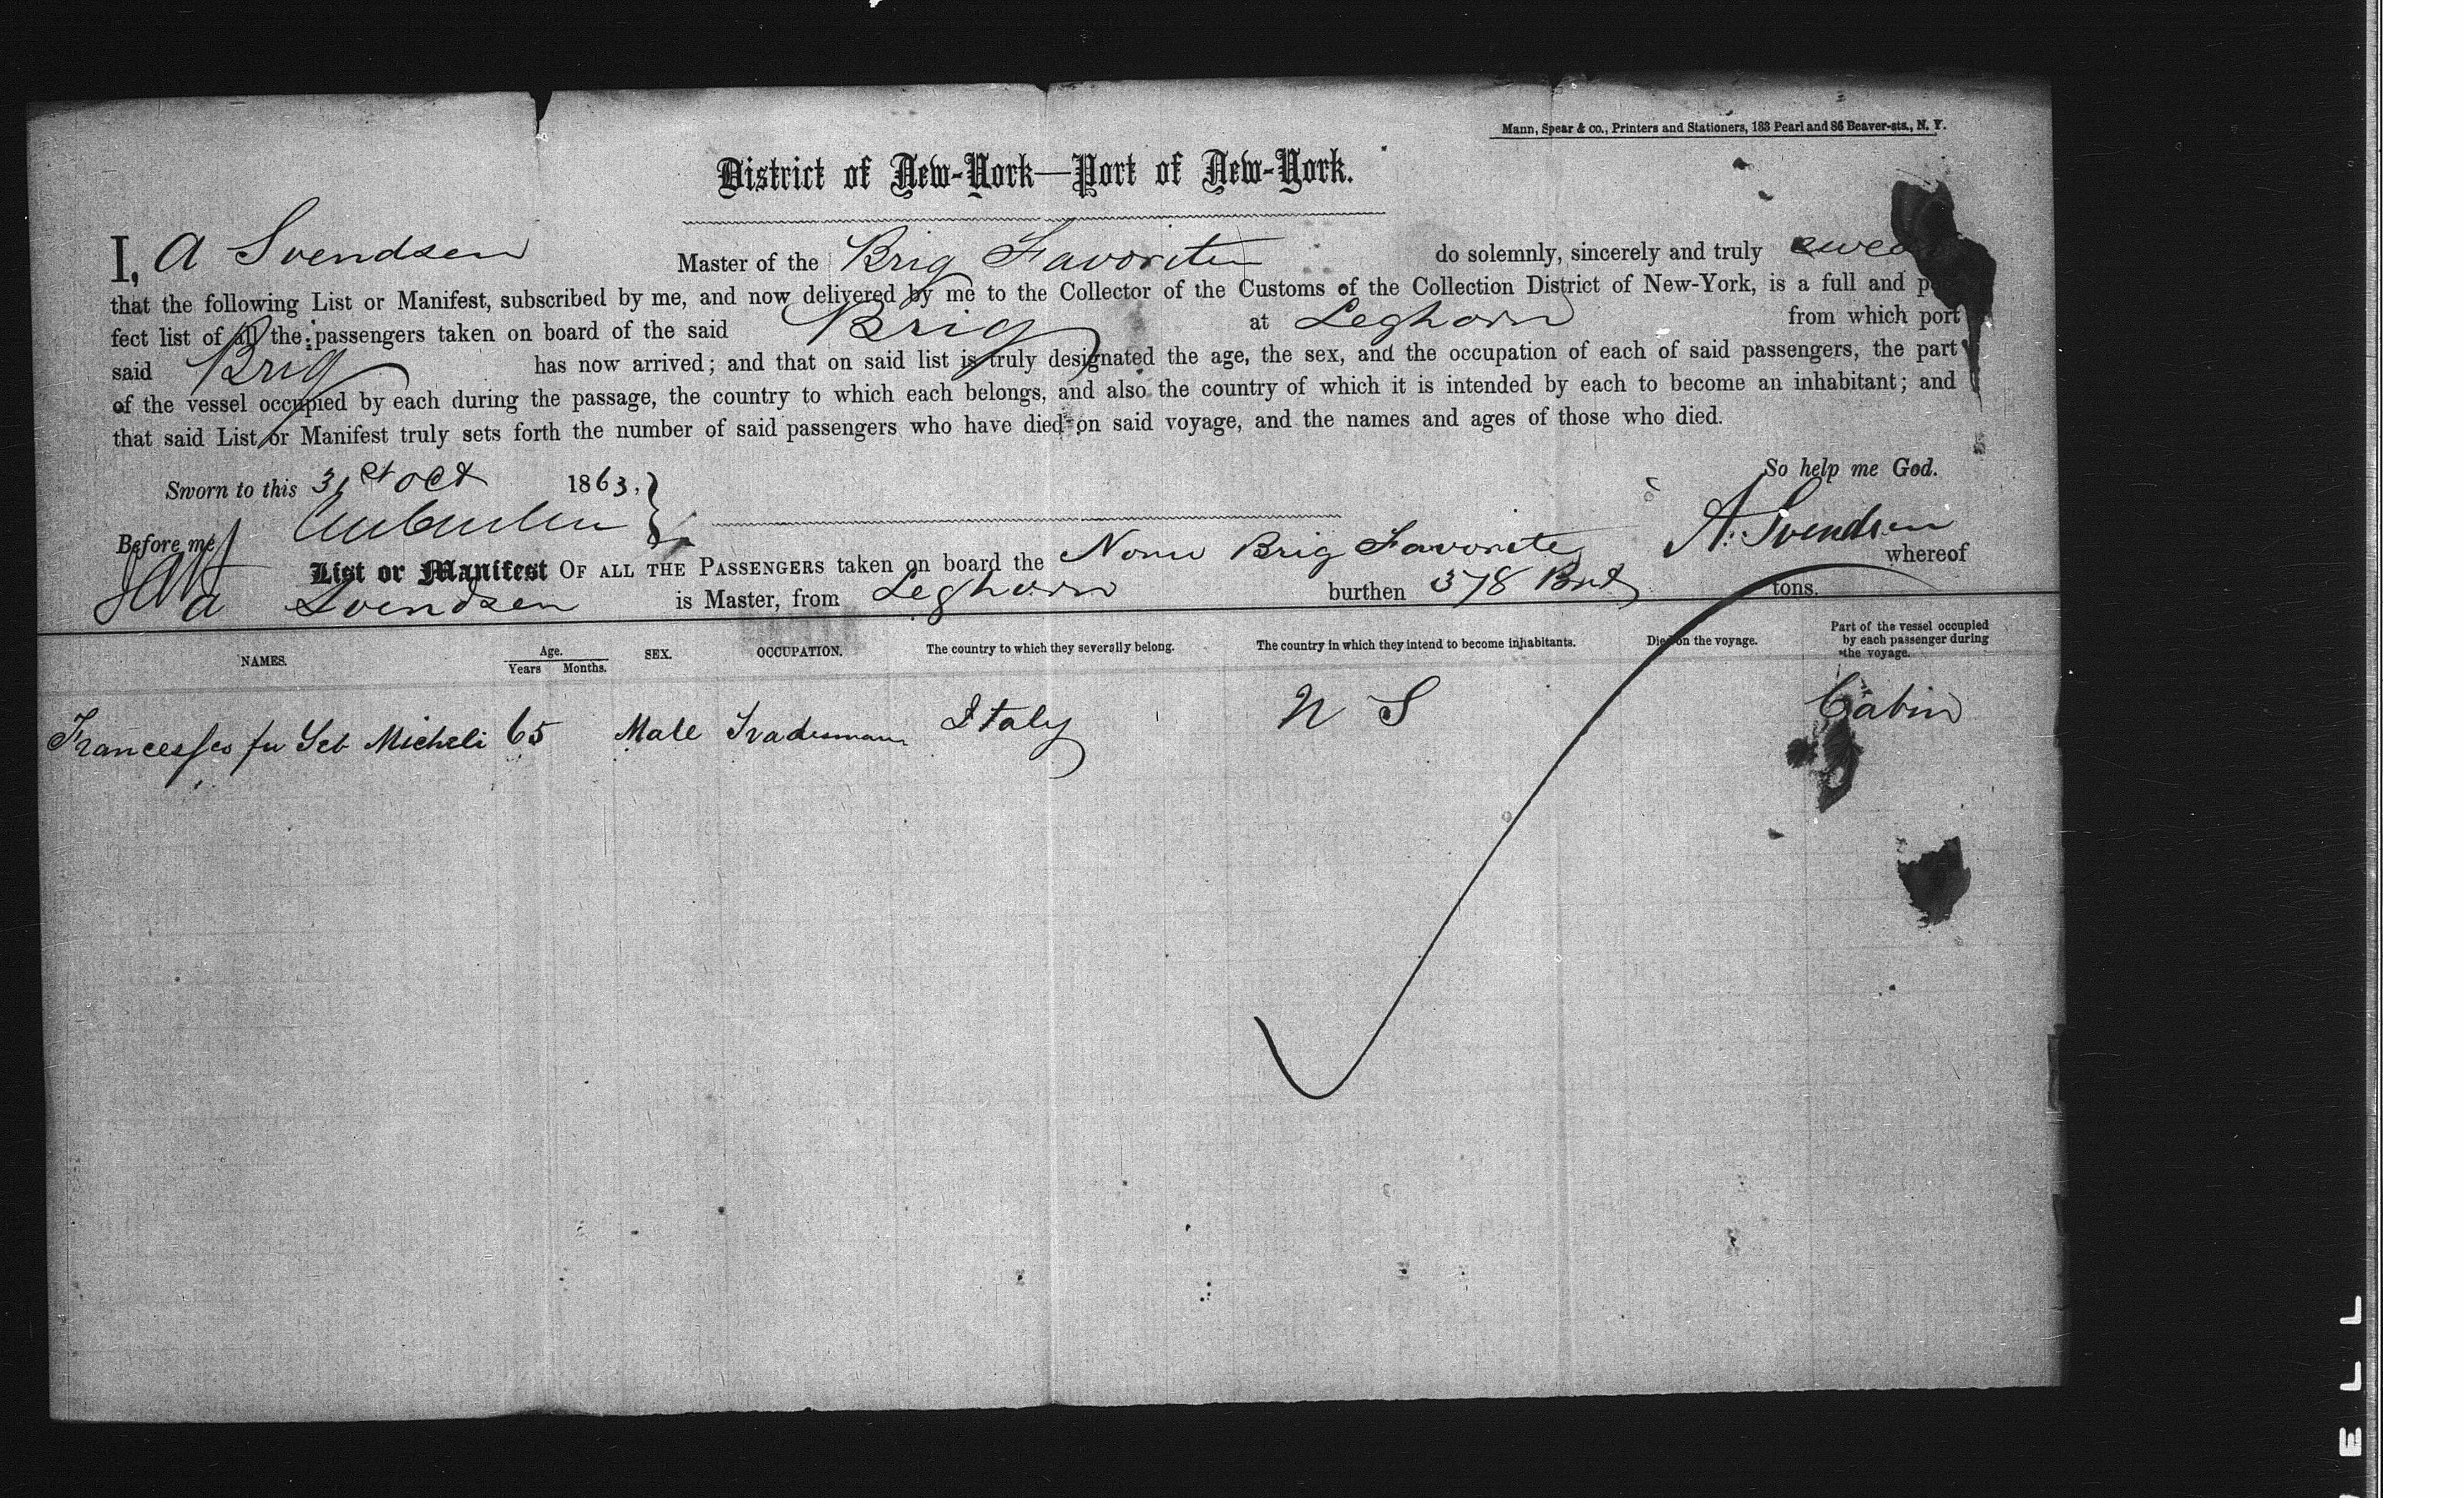 Mann, Spear & co., Printers and Stationers, 183 Pearl and 86 Beaver-sts., N. Y.
District of New-York—Port of New-York.
I, A Svendsen Master of the Brig Favorite do solemnly, sincerely and truly swear
that the following List or Manifest, subscribed by me, and now delivered by me to the Collector of the Customs of the Collection District of New-York, is a full and per
fect list of all the passengers taken on board of the said Brig at Leghorn from which port
said Brig has now arrived; and that on said list is truly designated the age, the sex, and the occupation of each of said passengers, the part
of the vessel occupied by each during the passage, the country to which each belongs, and also the country of which it is intended by each to become an inhabitant; and
that said List or Manifest truly sets forth the number of said passengers who have died on said voyage, and the names and ages of those who died.
So help me God.
Sworn to this 31st Oct 1863.
Before me A. Svendsen
List or Manifest OF ALL THE PASSENGERS taken on board the Norw Brig Favorite whereof
A Svendsen is Master, from Leghorn burthen 378 tons.
NAMES. Age. Years Months. SEX. OCCUPATION. The country to which they severally belong. The country in which they intend to become inhabitants. Died on the voyage. Part of the vessel occupied by each passenger during the voyage.
Francesco fu Seb Micheli 65 Male Tradesman Italy U S Cabin
E L L